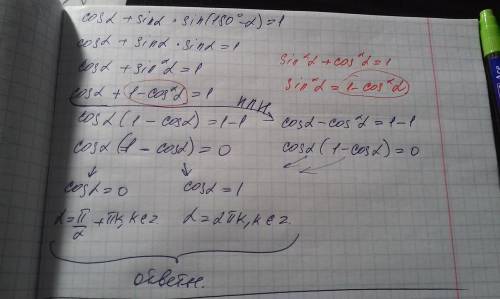 cosα + sinα · sin(180°-α) = 1
cosα + sinα · sinα = 1
cosα + sin²α = 1
cosα + 1 - cos²α = 1
cosα (1 - cosα) = 1-1
cosα (1 - cosα) = 0
cosα = 0 cosα = 1
α = π/2 + πk, k ∈ z α = 2πk, k ∈ z
ответ.
sin²α + cos²α = 1
sin²α = 1 - cos²α
или
cosα - cos²α = 1-1
cosα (1 - cosα) = 0